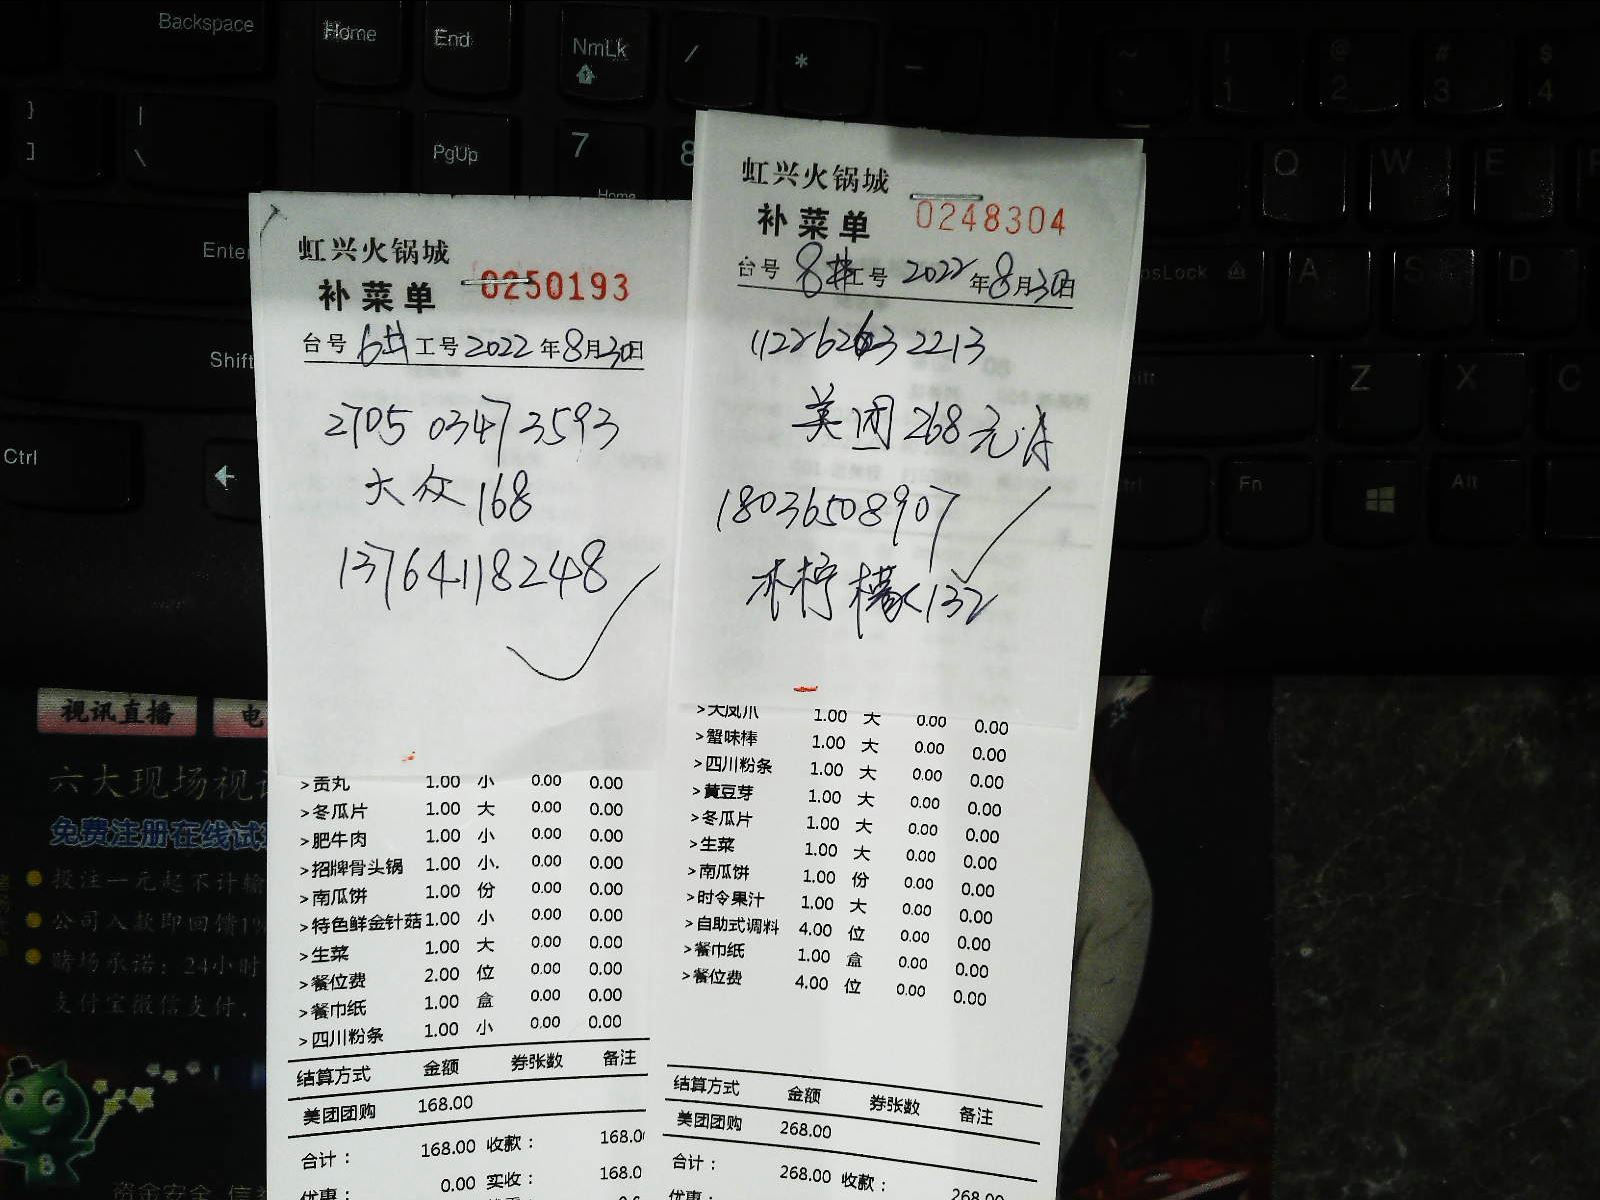 Backspace
Home
End
NmLk
/
*
-
}
]
|
\
PgUp
7
8
Home
Enter
Shift
Ctrl
~
! 1
@ 2
# 3
$ 4
Q
W
E
A
S
D
Z
X
C
Fn
Alt
虹兴火锅城
补菜单
0250193
台号 6# 工号 2022 年 8 月 30 日
2705 0347 3593
大众 168
13764118248
>贡丸 1.00 小 0.00 0.00
>冬瓜片 1.00 大 0.00 0.00
>肥牛肉 1.00 小 0.00 0.00
>招牌骨头锅 1.00 小. 0.00 0.00
>南瓜饼 1.00 份 0.00 0.00
>特色鲜金针菇 1.00 小 0.00 0.00
>生菜 1.00 大 0.00 0.00
>餐位费 2.00 位 0.00 0.00
>餐巾纸 1.00 盒 0.00 0.00
>四川粉条 1.00 小 0.00 0.00
结算方式 金额 券张数 备注
美团团购 168.00
合计： 168.00 收款： 168.0
优惠： 0.00 实收： 168.0
虹兴火锅城
补菜单
0248304
台号 8# 工号 2022 年 8 月 30 日
美团 268元
18036508907
柠檬 132
>大凤爪 1.00 大 0.00 0.00
>蟹味棒 1.00 大 0.00 0.00
>四川粉条 1.00 大 0.00 0.00
>黄豆芽 1.00 大 0.00 0.00
>冬瓜片 1.00 大 0.00 0.00
>生菜 1.00 大 0.00 0.00
>南瓜饼 1.00 份 0.00 0.00
>时令果汁 1.00 大 0.00 0.00
>自助式调料 4.00 位 0.00 0.00
>餐巾纸 1.00 盒 0.00 0.00
>餐位费 4.00 位 0.00 0.00
结算方式 金额 券张数 备注
美团团购 268.00
合计： 268.00 收款： 268.00
视讯直播
电
六大现场视
免费注册在线试
投注一元起不计输
公司入款即回馈1%
赌场承诺：24小时
支付宝微信支付，
资金安全